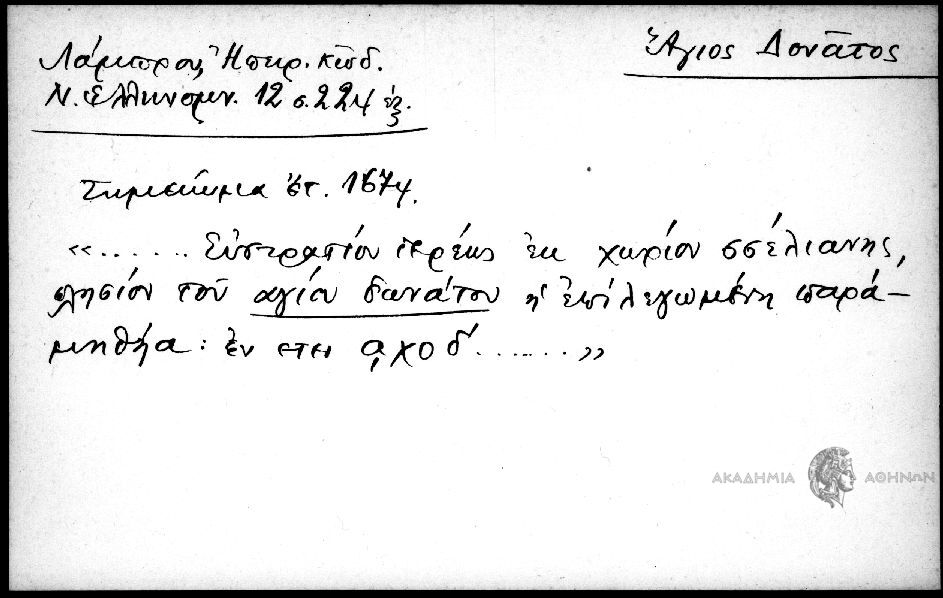 Ἅγιος Δονᾶτος
Λάμπρος, Ἠπειρ. κῶδ.
Ν. Ἑλληνομν. 12 σ. 224 ἑξ.
Σημείωμα ἔτ. 1674.
«...... Εὐστρατίου ἱερέως ἐκ χωρίου σσέλιανης,
πλησίον τοῦ αγίου δωνάτου ἡ ἐπιλεγωμένη παρά-
μηθήα: ἐν ετει α͵χοδ΄.......»
ΑΚΑΔΗΜΙΑ ΑΘΗΝΩΝ